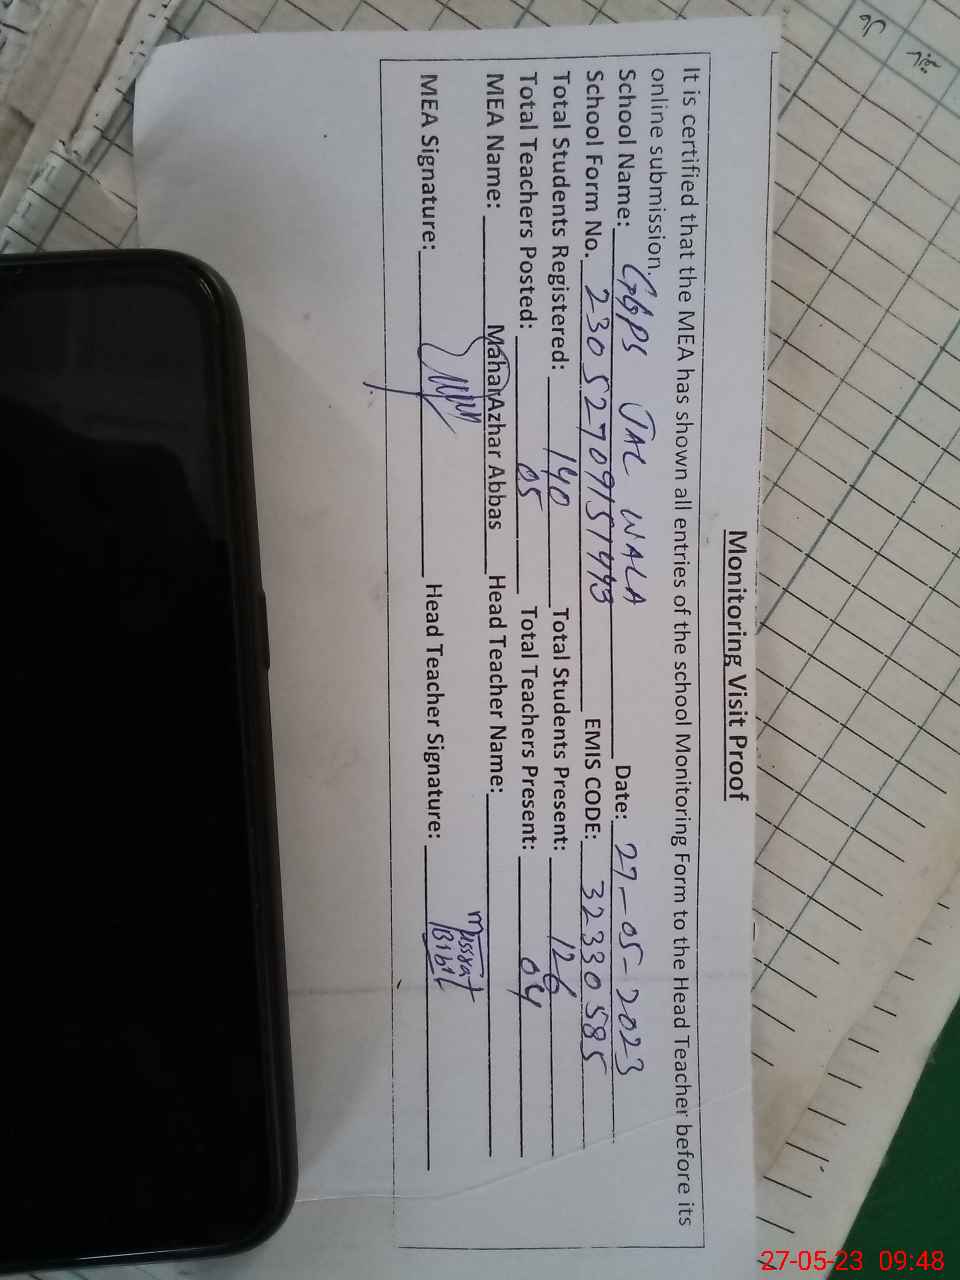 Monitoring Visit Proof
It is certified that the MEA has shown all entries of the school Monitoring Form to the Head Teacher before its
online submission.
School Name: GGPS JAL WALA Date: 27-05-2023
School Form No. 23052709151443 EMIS CODE: 32330585
Total Students Registered: 140 Total Students Present: 126
Total Teachers Posted: 05 Total Teachers Present: 04
MEA Name: Mahar Azhar Abbas Head Teacher Name:
MEA Signature: Head Teacher Signature: Mussrat Bibi
27-05-23 09:48